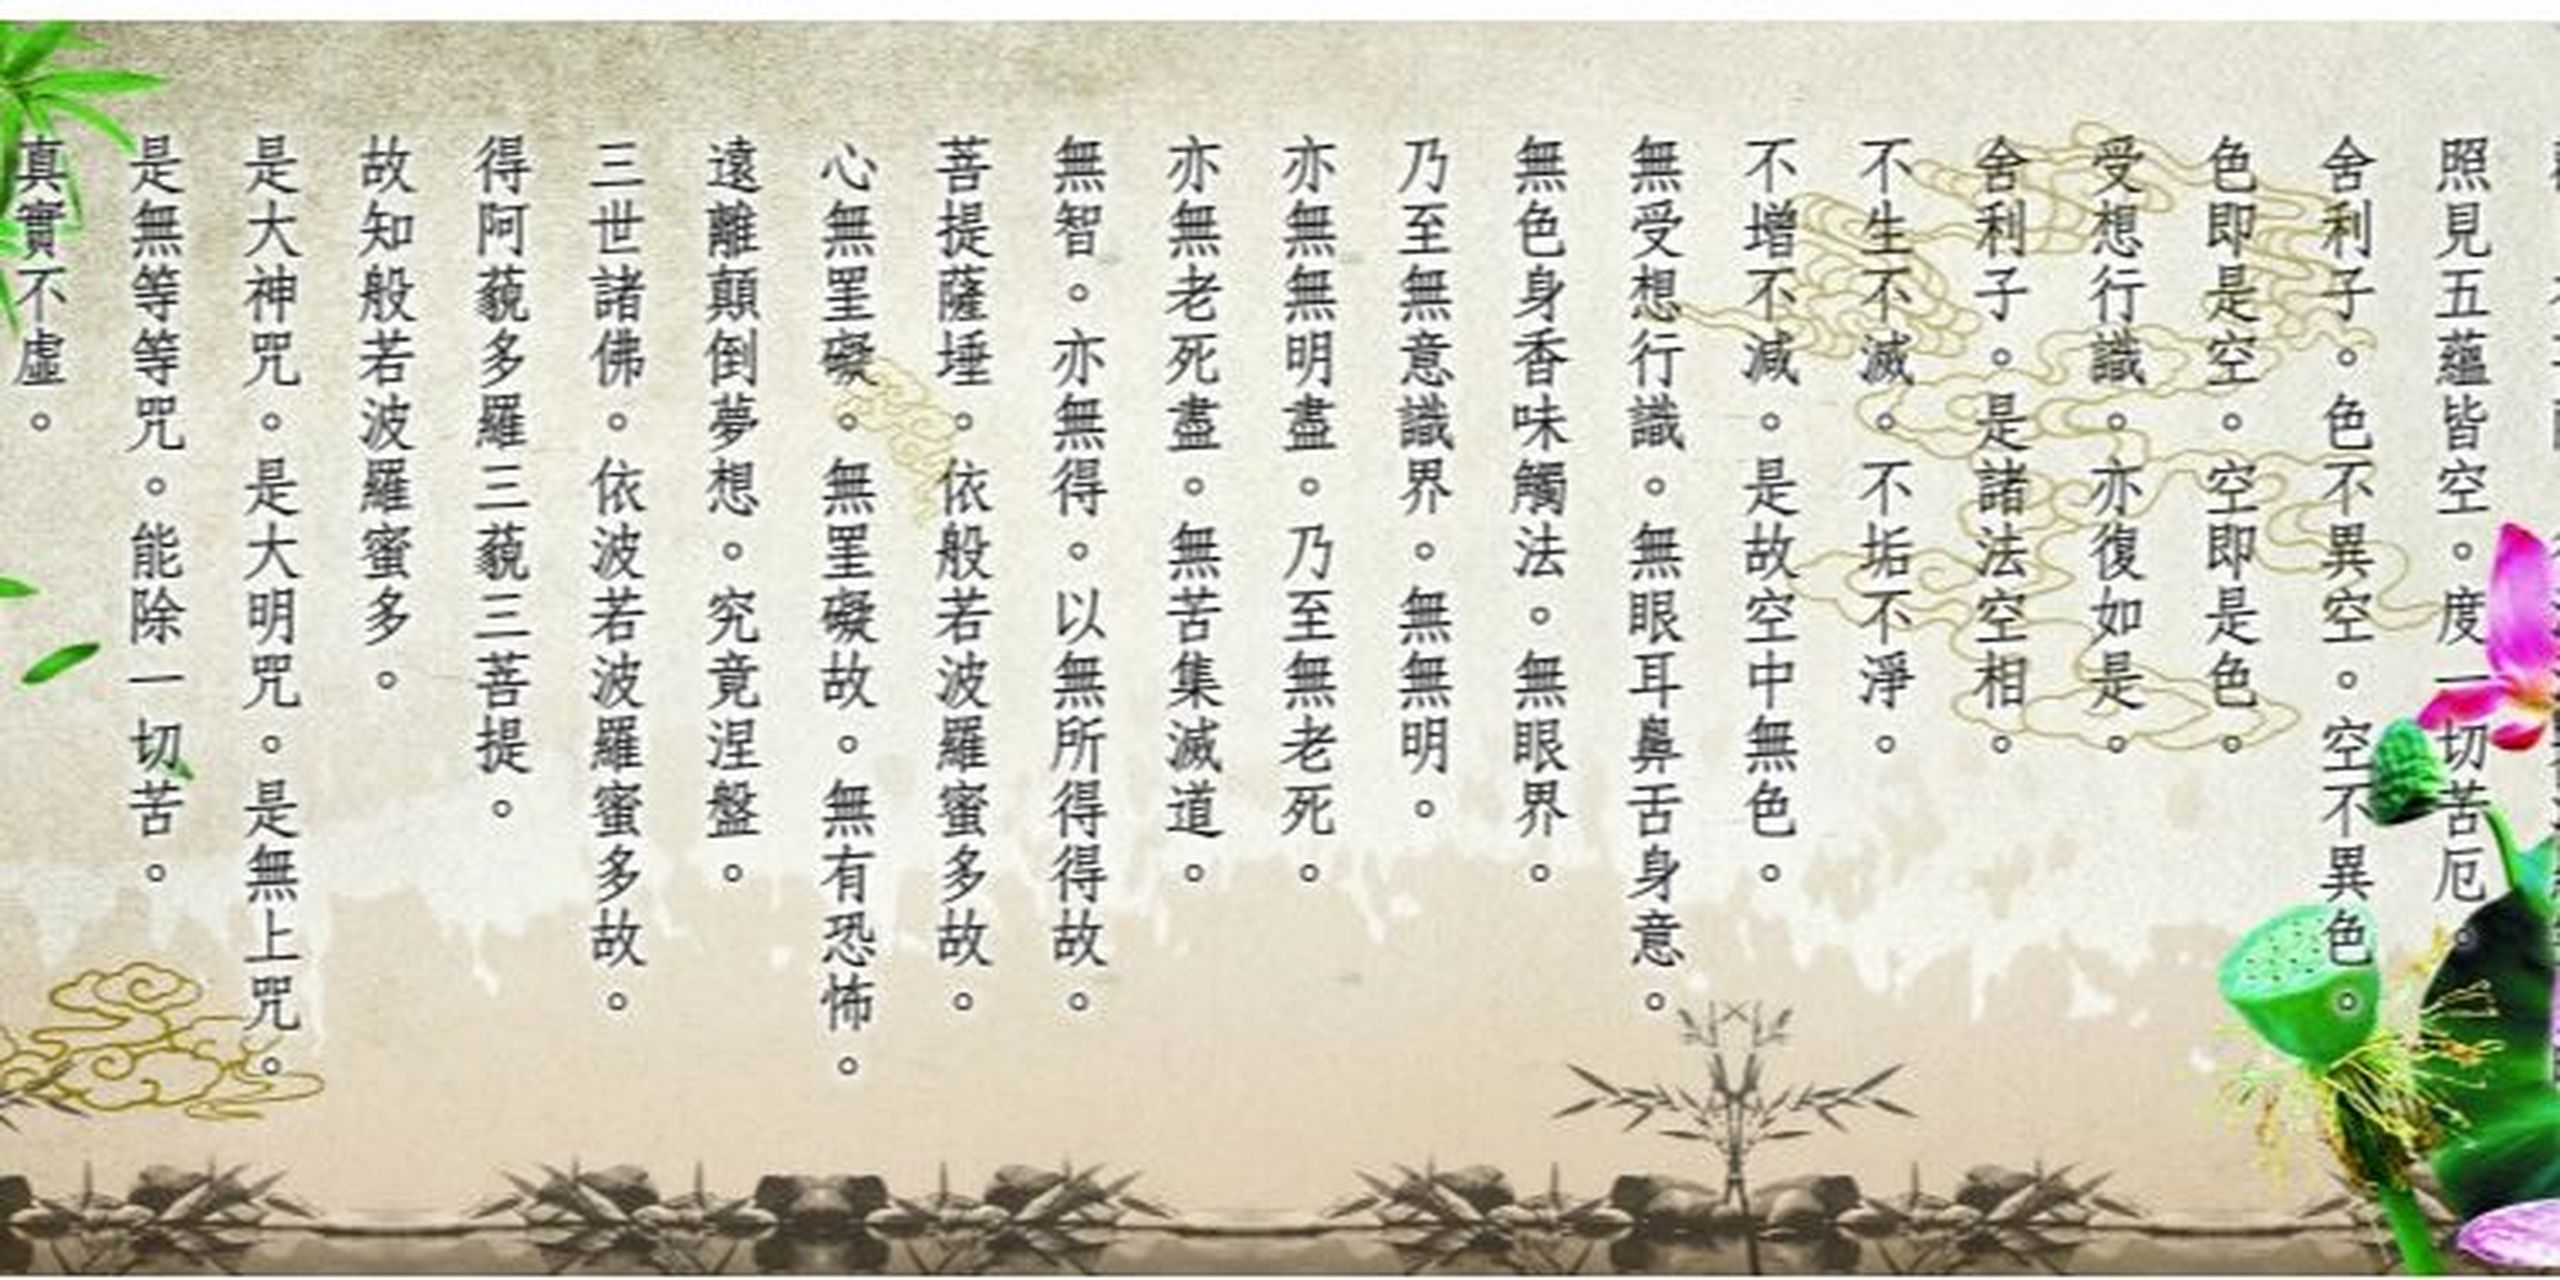 照見五蘊皆空。度一切苦厄。
舍利子。色不異空。空不異色。
色即是空。空即是色。
受想行識。亦復如是。
舍利子。是諸法空相。
不生不滅。不垢不淨。
不增不減。是故空中無色。
無受想行識。無眼耳鼻舌身意。
無色身香味觸法。無眼界。
乃至無意識界。無無明。
亦無無明盡。乃至無老死。
亦無老死盡。無苦集滅道。
無智。亦無得。以無所得得故。
菩提薩埵。依般若波羅蜜多故。
心無罣礙。無罣礙故。無有恐怖。
遠離顛倒夢想。究竟涅盤。
三世諸佛。依波若波羅蜜多故。
得阿藐多羅三藐三菩提。
故知般若波羅蜜多。
是大神咒。是大明咒。是無上咒。
是無等等咒。能除一切苦。
真實不虛。